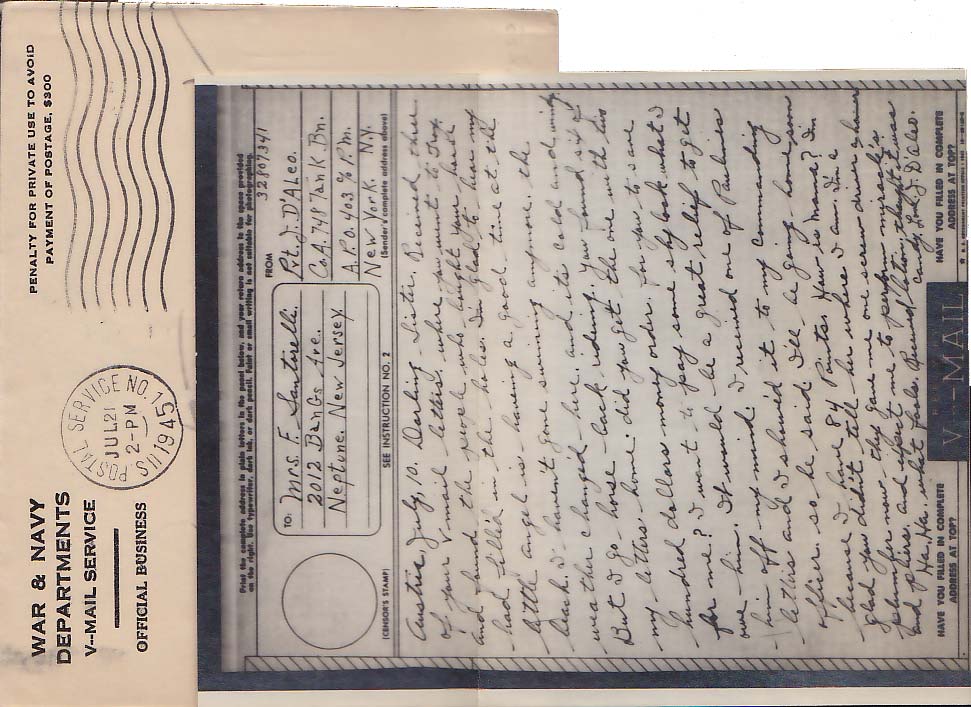 WAR & NAVY
DEPARTMENTS
V--MAIL SERVICE
OFFICIAL BUSINESS
U.S. POSTAL SERVICE NO. 1
JUL 21
2-PM
1945
PENALTY FOR PRIVATE USE TO AVOID
PAYMENT OF POSTAGE, $300
Print the complete address in plain letters in the panel below, and your return address in the space provided
on the right. Use typewriter, dark ink, or dark pencil. Faint or small writing is not suitable for photographing.
(CENSOR'S STAMP)
TO:
Mrs. F. Santorelli.
2012 Bangs Ave.
Neptune, New Jersey
SEE INSTRUCTION NO. 2
FROM
32807341
Pvt. J. D'Aleo.
Co. A. 748 Tank Bn.
A.P.O. 403 % P.M.
New York. N.Y.
(Sender's complete address above)
Austria, July, 10. Darling Sister. Received three
of your V mail letters, where you went to Troy.
and found the people who bought your house
had filled in the holes. I'm glad to hear my
little angel is having a good time at the
beach. I haven't gone swimming anymore. the
weather changed here. and its cold and windy.
But I go horse-back riding. You found six of
my letters home. did you get the one with two
hundred dollars money order. for you to save
for me? I want to pay some shylock what I
owe him. It would be a great relief to get
him off my mind. I received one of Pauline's
letters and I showed it to my commanding
officer. so he said I'll be going home soon
because I have 84 Points. How is Maud? I'm
glad you didn't tell her where I am. I'm a
plumber now. they gave me one screw driver a hammer
and pliers. and expect me to perform miracles
Ha, Ha. what fools. Received lotion, thought it was
candy. Love J. D'aleo.
HAVE YOU FILLED IN COMPLETE
ADDRESS AT TOP?
V-MAIL
HAVE YOU FILLED IN COMPLETE
ADDRESS AT TOP?